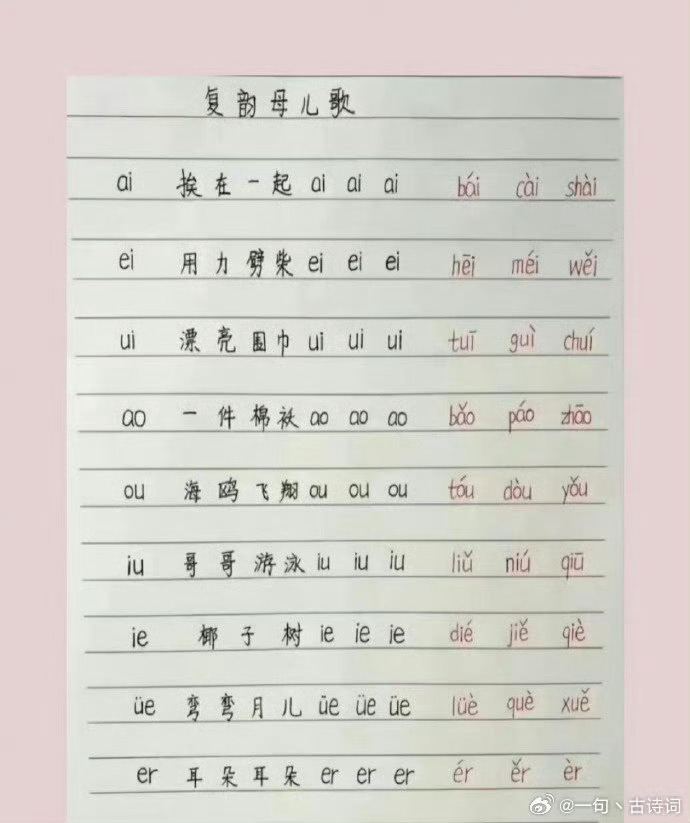 复韵母儿歌
ai 挨在一起 ai ai ai bái cài shài
ei 用力劈柴 ei ei ei hēi méi wěi
ui 漂亮围巾 ui ui ui tuī guì chuí
ao 一件棉袄 ao ao ao bǎo páo zhāo
ou 海鸥飞翔 ou ou ou tóu dòu yǒu
iu 哥哥游泳 iu iu iu liǔ niú qiū
ie 椰子树 ie ie ie dié jiě qiè
üe 弯弯月儿 üe üe üe lüè què xuě
er 耳朵耳朵 er er er ér ěr èr
@一句丶古诗词